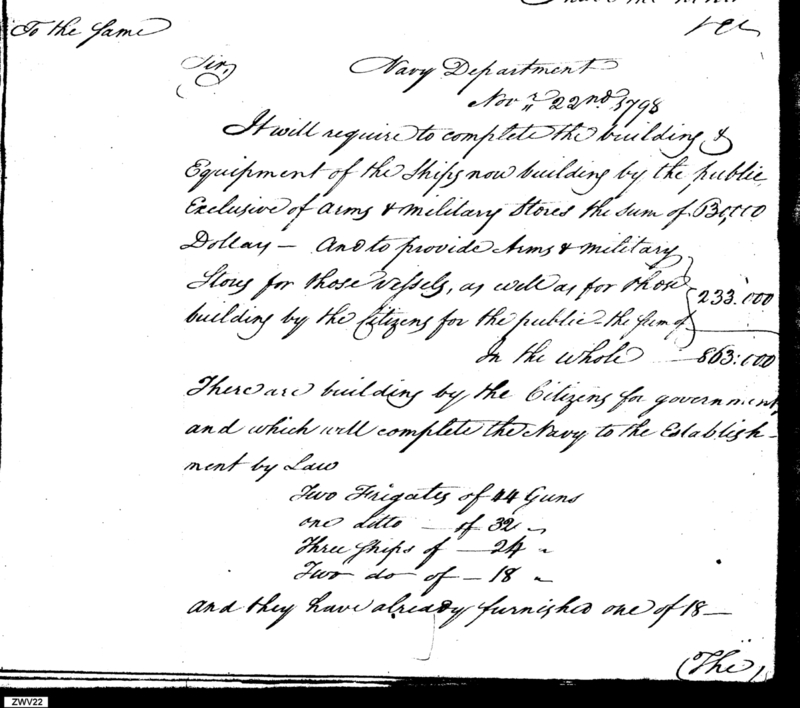 &c
To the Same
Sir,
Navy Department
Novr. 22nd. 1798
It will require to complete the building &
Equipment of the Ships now building by the public
Exclusive of Arms & military Stores the sum of 630,000
Dollars — And to provide Arms & military
Stores for those vessels, as well as for those
building by the Citizens for the public – the sum of
233.000
In the whole — 863:000
There are building by the Citizens for government,
and which will complete the Navy to the Establish-
ment by Law
Two Frigates of 44 Guns
one ditto — of 32 "
Three Ships of — 24 "
Two do of — 18 "
and they have already furnished one of 18 —
(The)
ZWV22